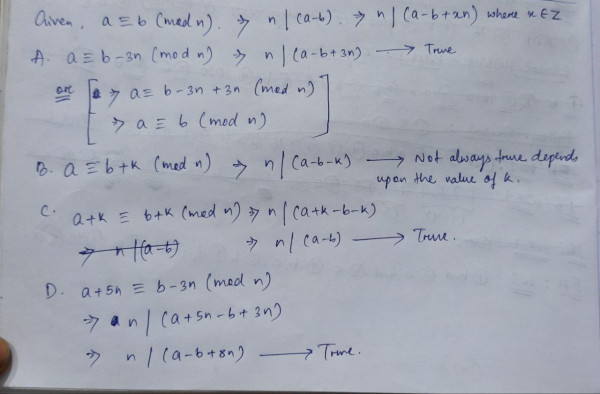 Given, a ≡ b (mod n). ⇒ n | (a-b). ⇒ n | (a-b+xn) where x ∈ Z
A. a ≡ b-3n (mod n) ⇒ n | (a-b+3n) → True
or [ ⇒ a ≡ b-3n+3n (mod n)
⇒ a ≡ b (mod n) ]
B. a ≡ b+k (mod n) ⇒ n | (a-b-k) → Not always true depends
upon the value of k.
C. a+k ≡ b+k (mod n) ⇒ n | (a+k-b-k)
⇒ n | (a-b) ⇒ n | (a-b) → True.
D. a+5n ≡ b-3n (mod n)
⇒ n | (a+5n-b+3n)
⇒ n | (a-b+8n) → True.